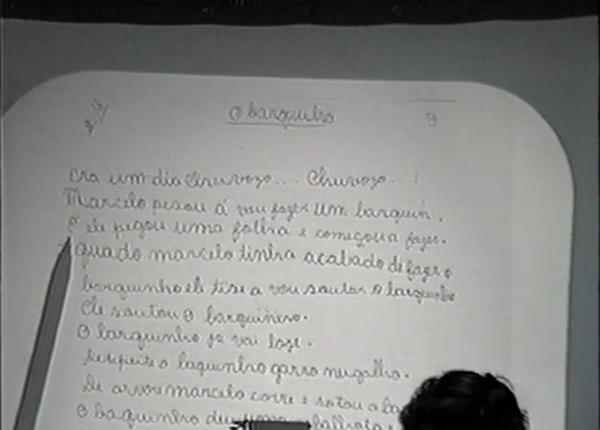 O barquinho 9
Era um dia chuvozo... Chuvozo...
Marcelo pesou á vou fazer um barquin.
e ele pegou uma folha e começou a fazer.
quado marcelo tinha acabado de fazer o
barquinho eli tise a vou soutar o barquinho
Ele soutou o barquinho.
O barquinho ja vai loge.
derepente o laquinho garro nu galho.
De arvori marcelo corre e sotou o ba
O baquinho